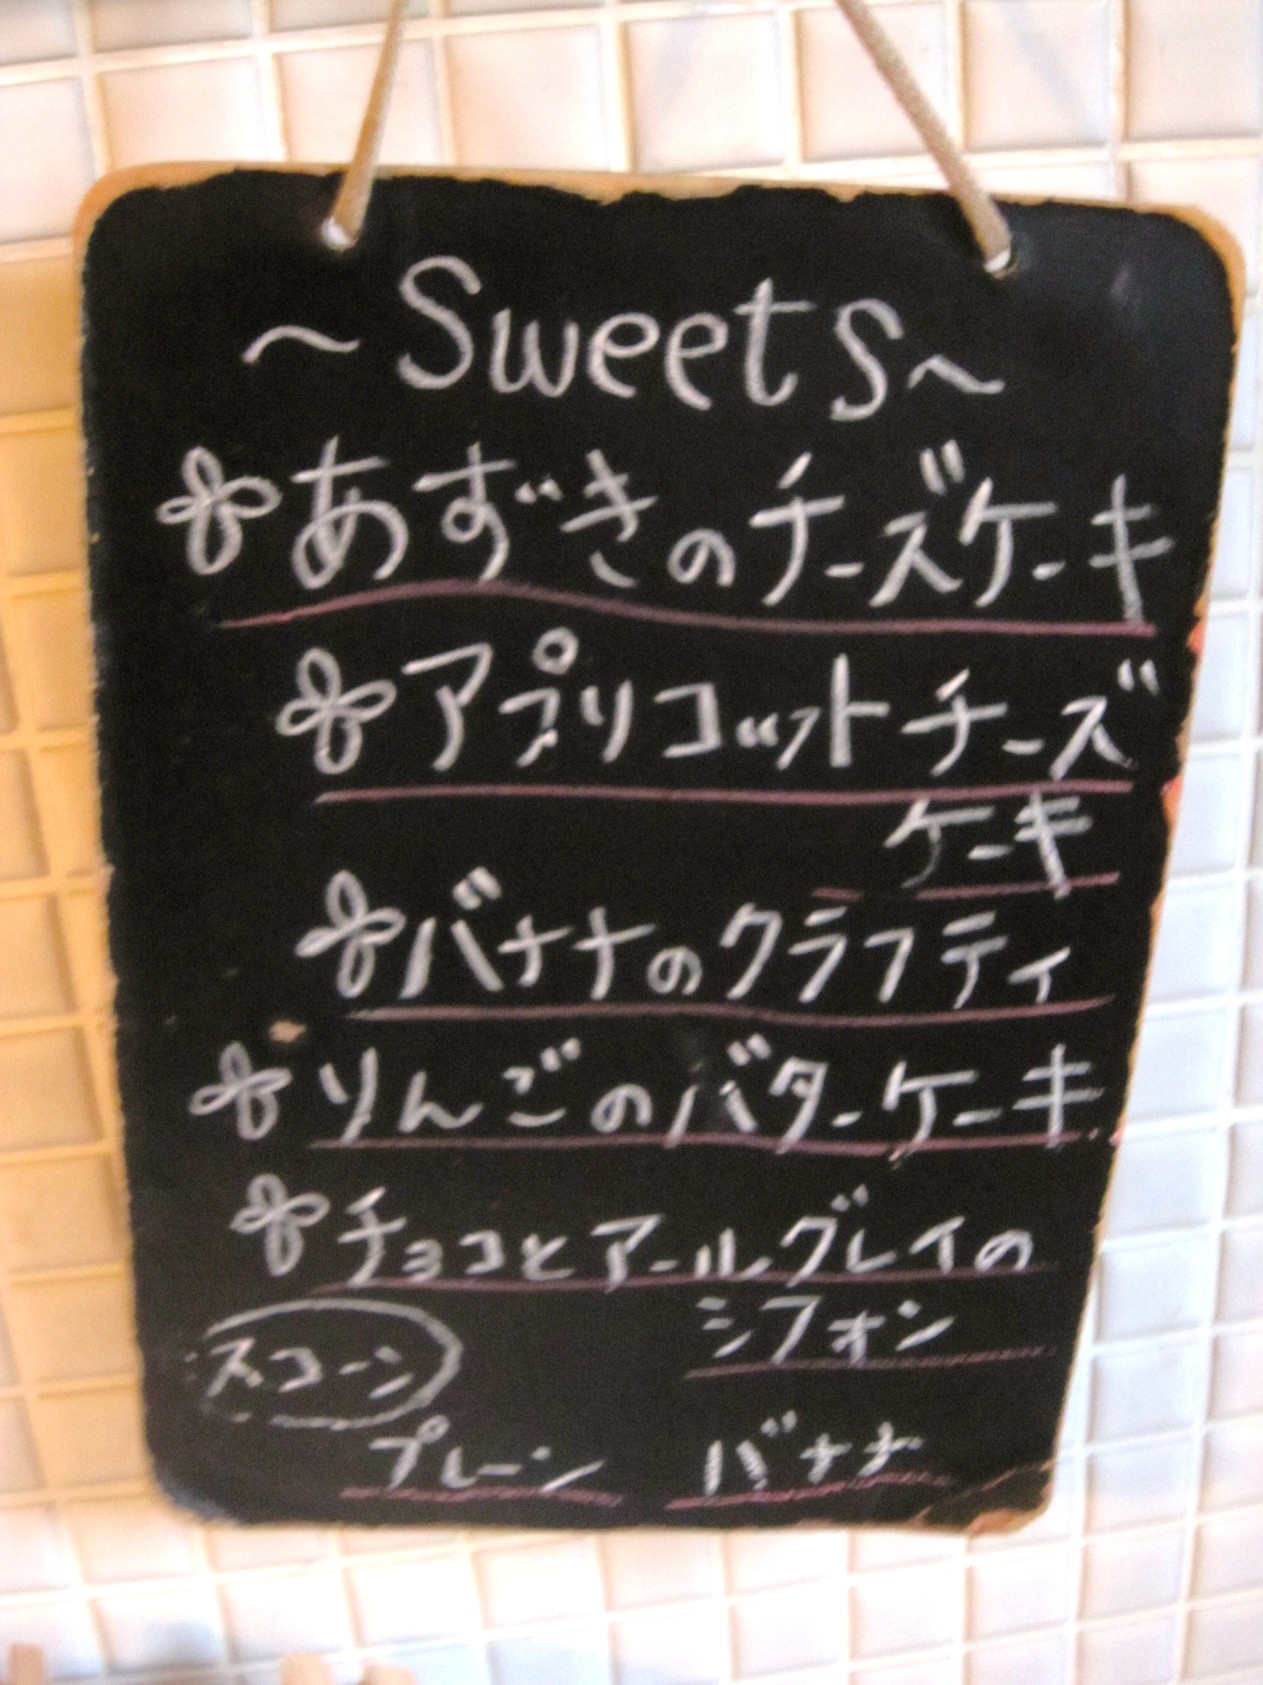 ～Sweets～
あずきのチーズケーキ
アプリコットチーズ
ケーキ
バナナのクラフティ
りんごのバターケーキ
チョコとアールグレイの
シフォン
スコーン
プレーン バナナ